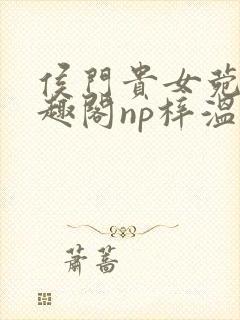 侯門貴女菀
趣閣np梓溫
蕭蒿